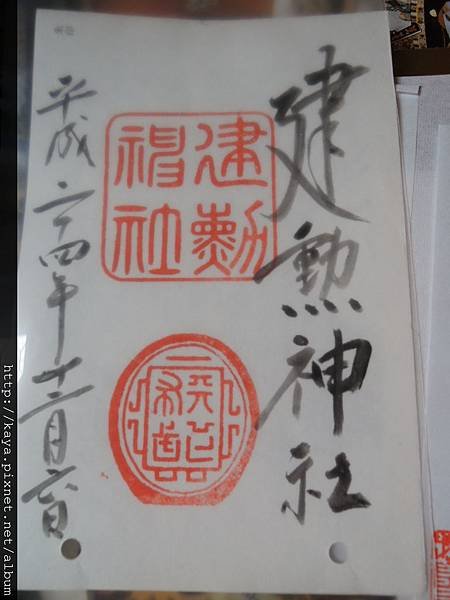 建勲神社
建勲
神社
平成二十四年十二月六日
http://kaya.pixnet.net/album